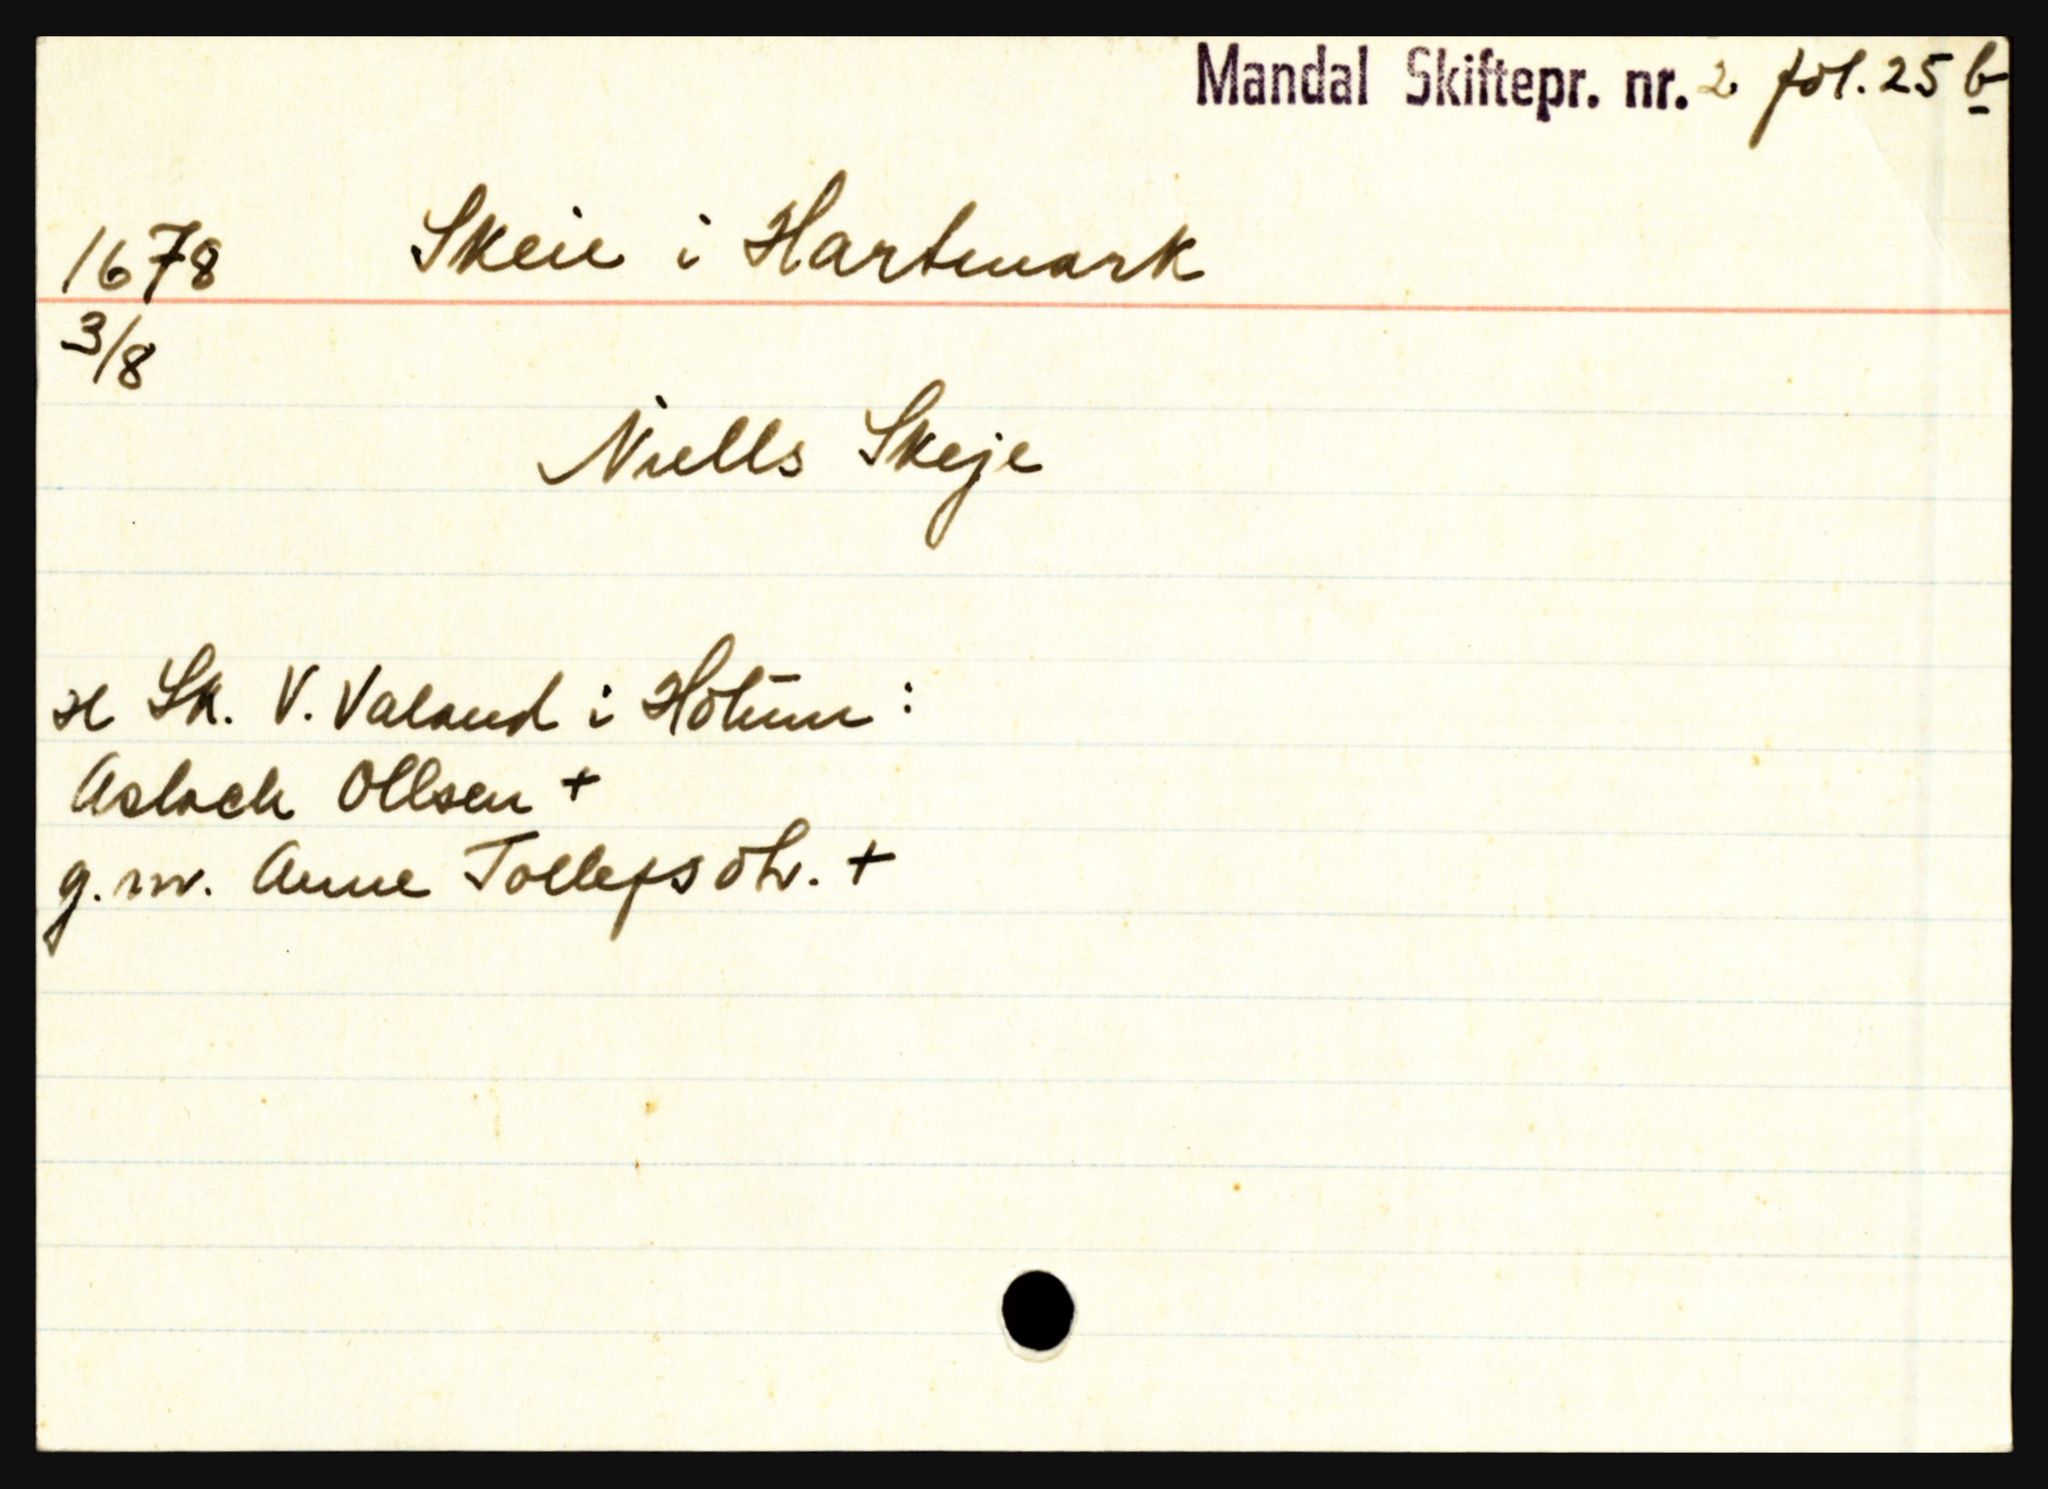 Mandal Skiftepr. nr. 2 fol. 25 b
1678 Skeie i Hartmark
3/8
Niells Skeje
Sk. V. Valand i Holum :
Aslach Ollsen +
g.m. Anne Tollefsdtr. +